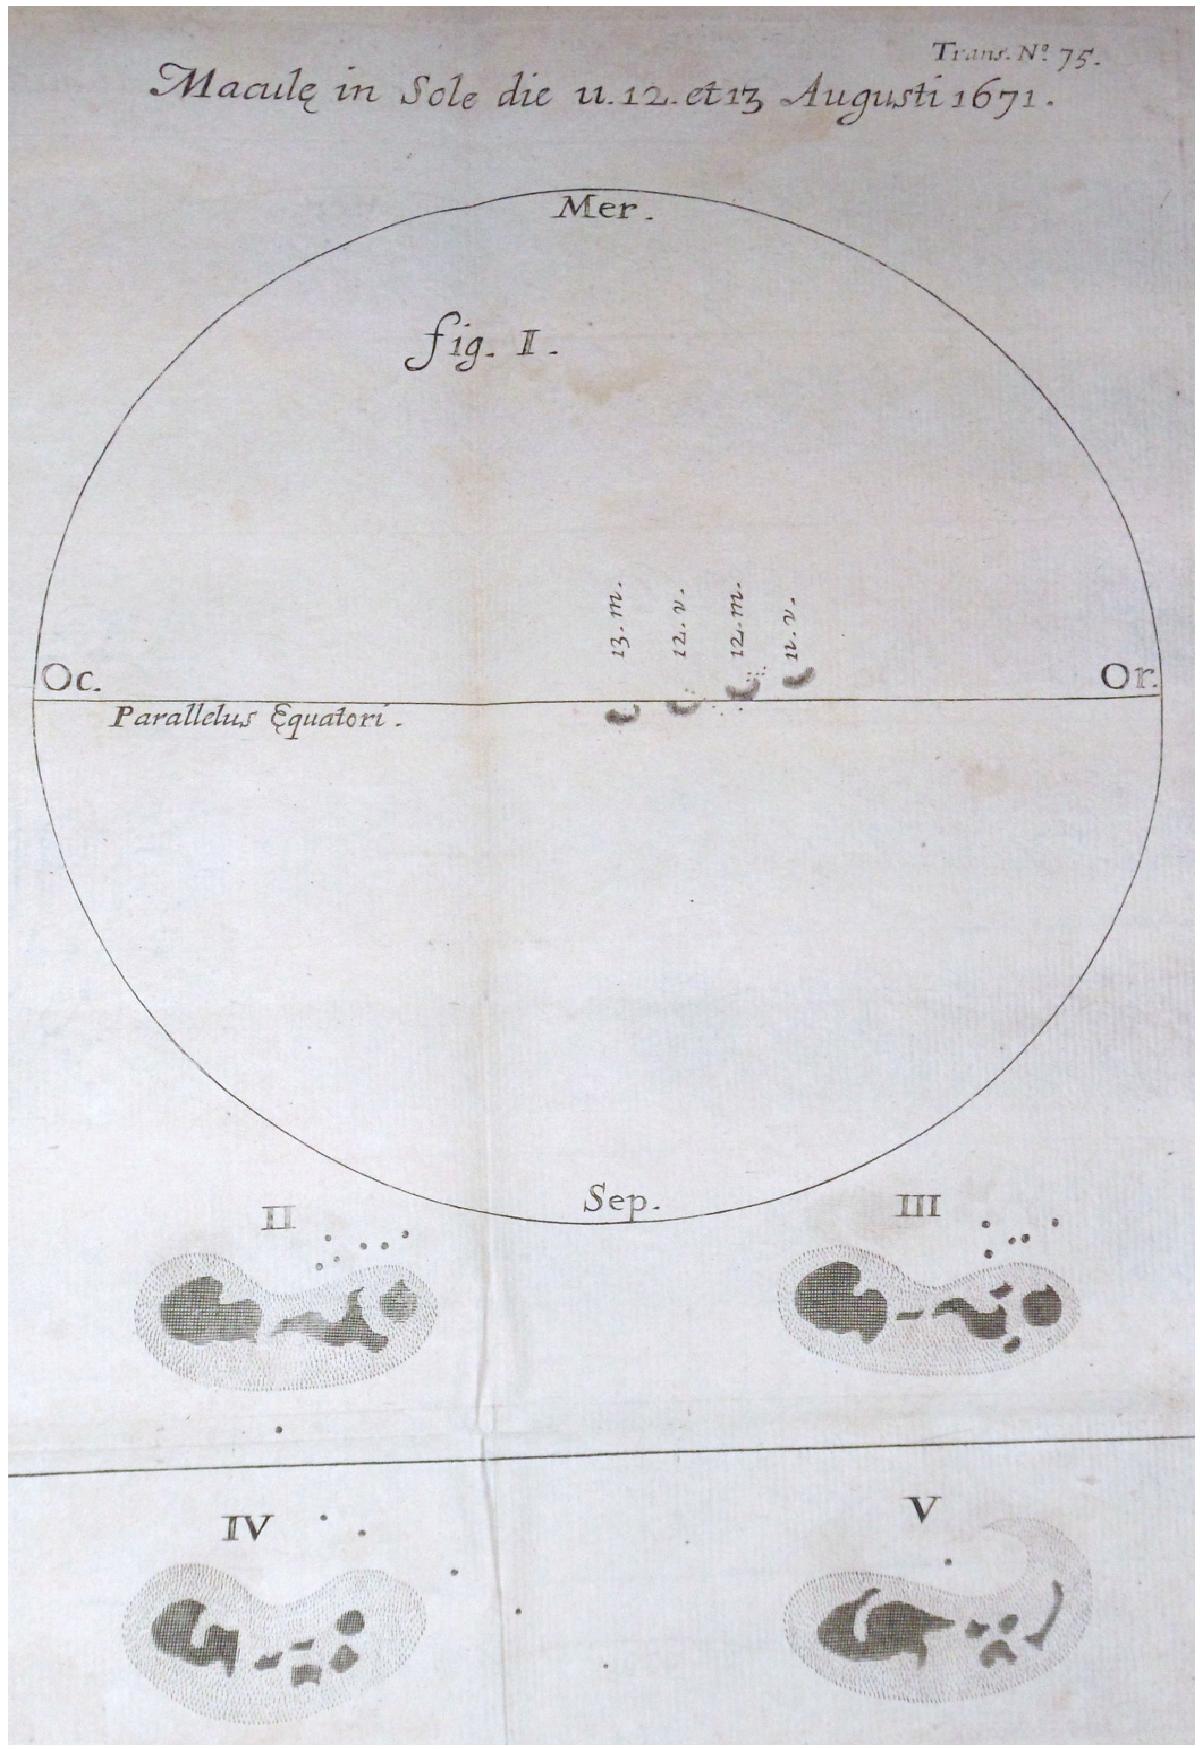 Trans. Nº. 75.
Maculę in Sole die 11. 12. et 13 Augusti 1671.
Mer.
fig. I.
13. m.
12. v.
12. m.
11. v.
Oc.
Or.
Parallelus Ęquatori.
Sep.
II
III
IV
V